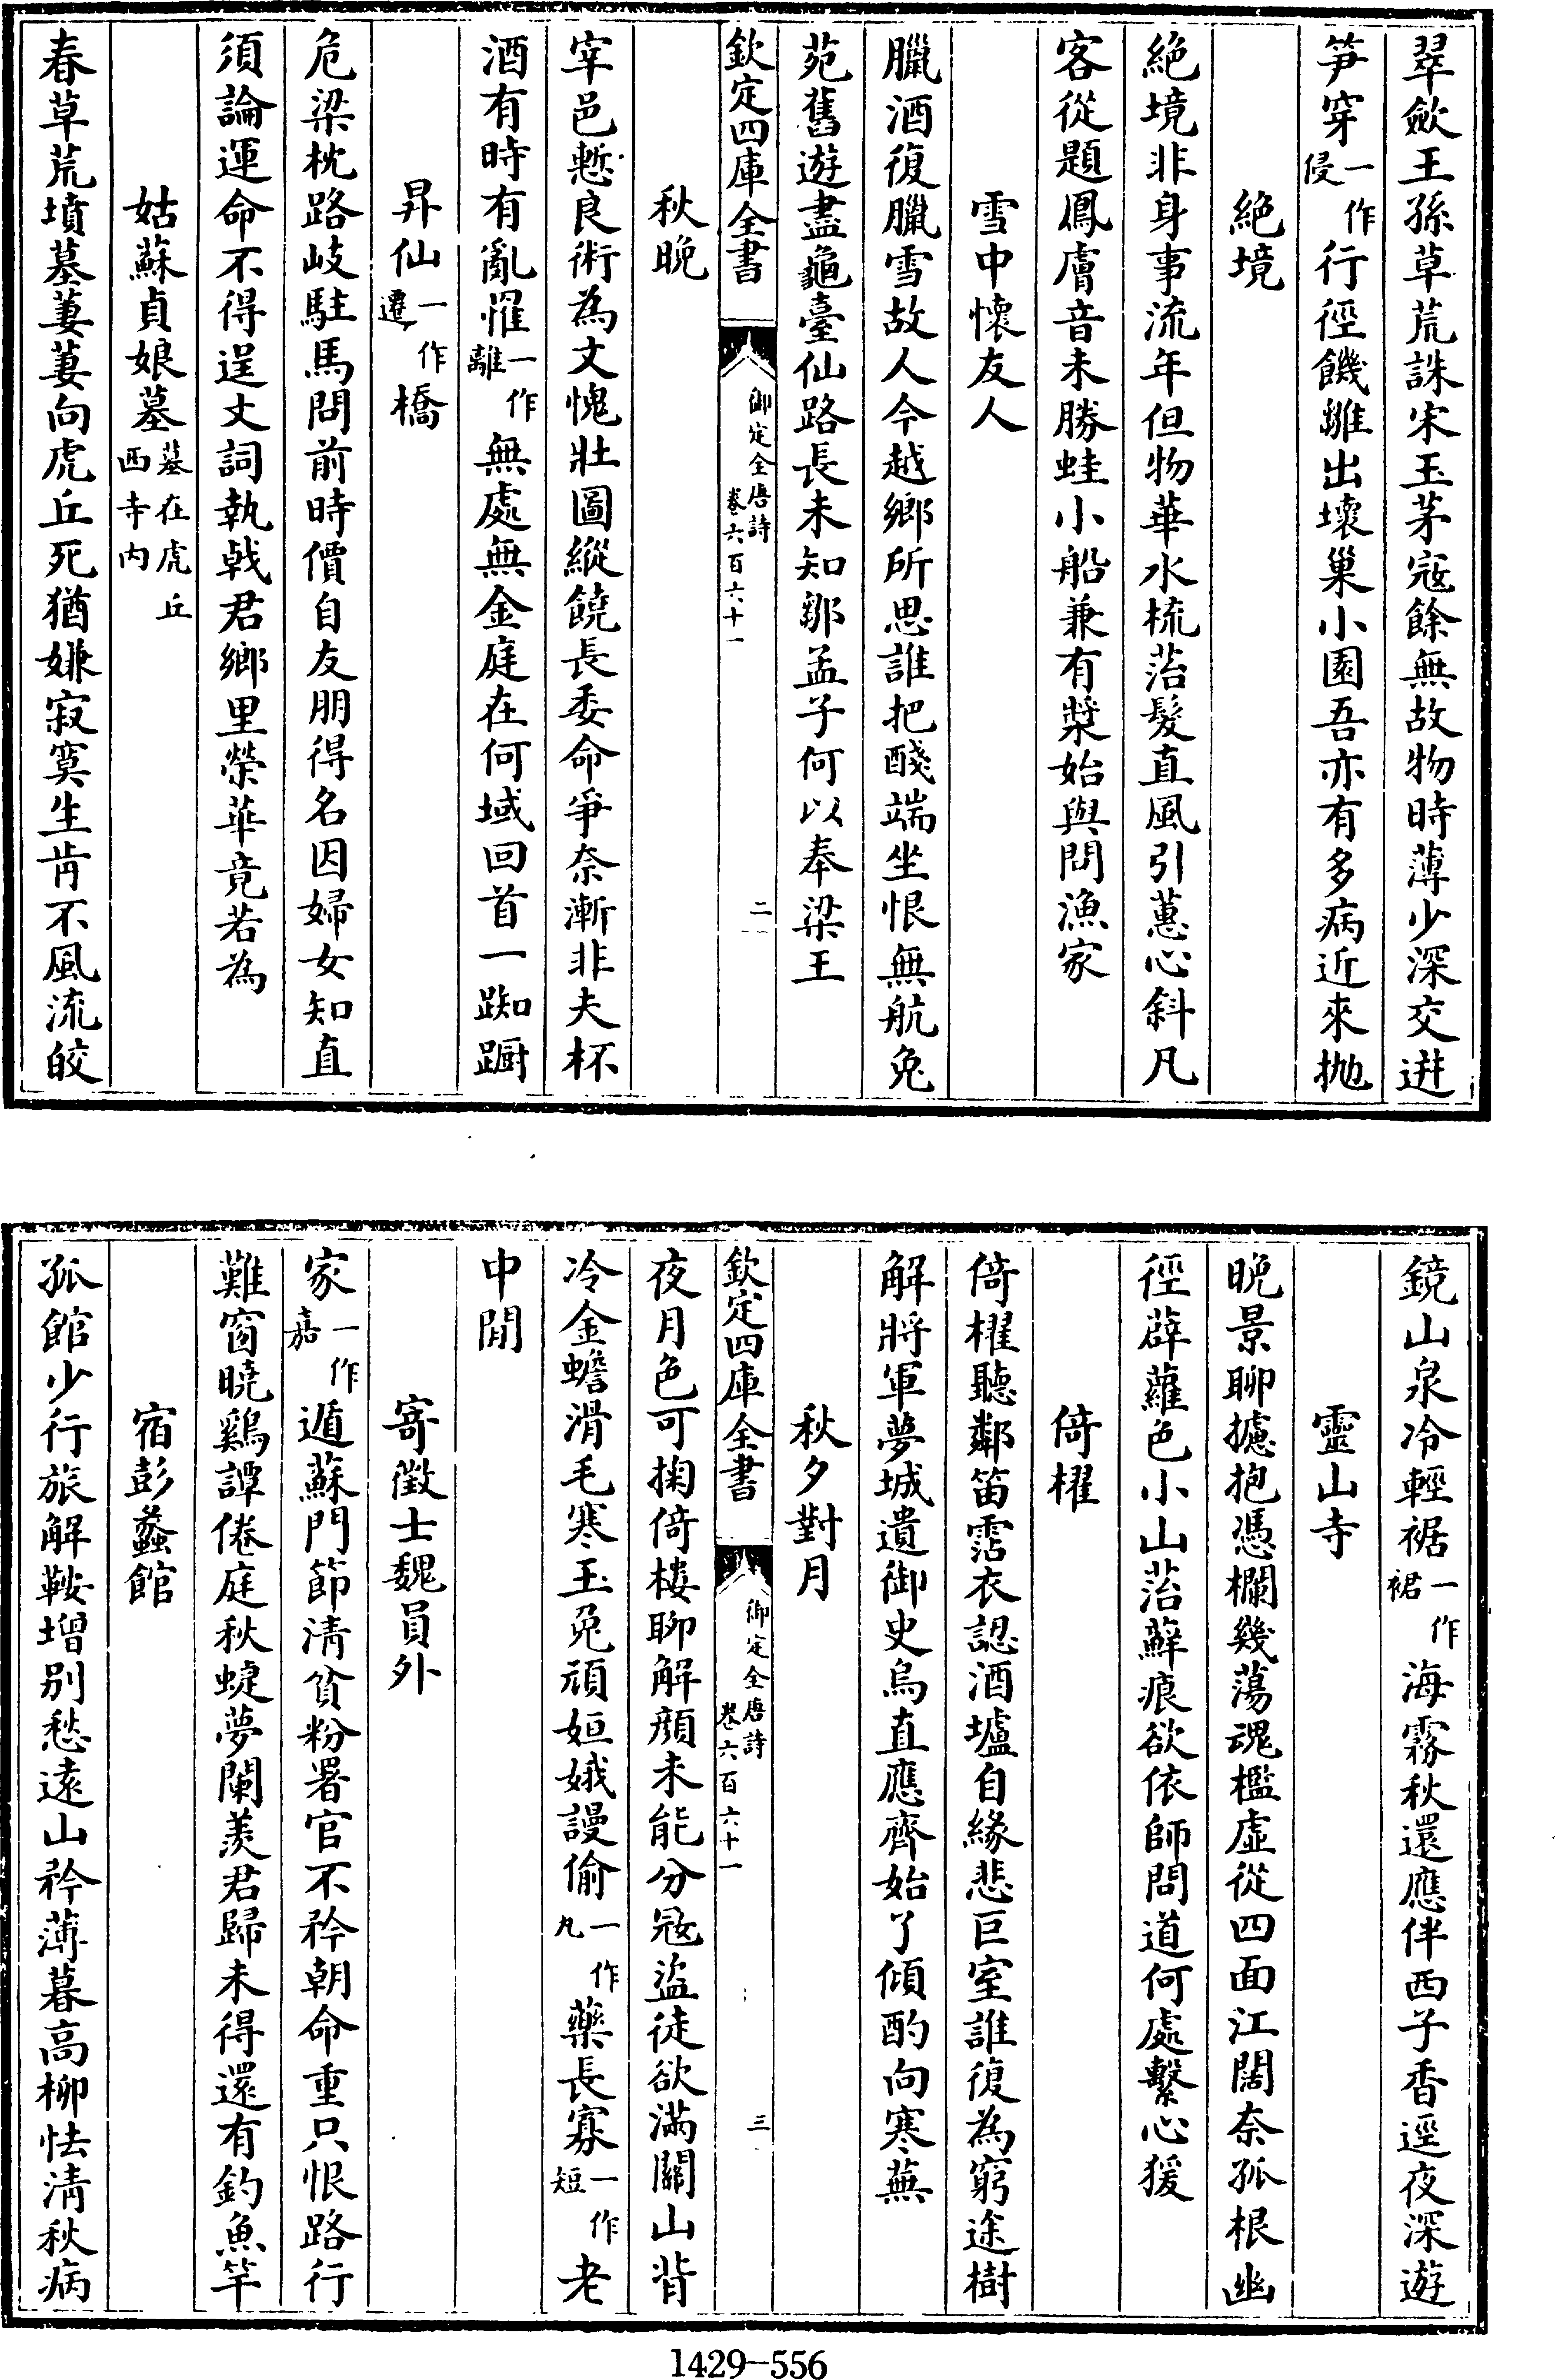 翠斂王孫草荒誅宋玉茅寇餘無故物時薄少深交迸
笋穿一作侵行徑饑雛出壞巢小園吾亦有多病近來拋
絶境
絶境非身事流年但物華水梳菭髮直風引蕙心斜凡
客從題鳳膚音未勝蛙小船兼有槳始與問漁家
雪中懷友人
臘酒復臘雪故人今越鄉所思誰把醆端坐恨無航兔
苑舊遊盡龜臺仙路長未知鄒孟子何以奉梁王
欽定四庫全書 御定全唐詩卷六百六十一 二
秋晩
宰邑慙良術為文愧壯圖縱饒長委命爭奈漸非夫杯
酒有時有亂罹一作離無處無金庭在何域回首一踟蹰
昇仙一作遷橋
危梁枕路岐駐馬問前時價自友朋得名因婦女知直
須論運命不得逞文詞執戟君鄉里榮華竟若為
姑蘇貞娘墓墓在虎丘西寺内
春草荒墳墓萋萋向虎丘死猶嫌寂寞生肯不風流皎
鏡山泉冷輕裾一作裙海霧秋還應伴西子香逕夜深遊
靈山寺
晩景聊攄抱憑欄幾蕩魂檻虛從四面江闊奈孤根幽
徑薜蘿色小山菭蘚痕欲依師問道何處繫心猨
倚櫂
倚櫂聽鄰笛霑衣認酒壚自緣悲巨室誰復為窮途樹
解將軍夢城遺御史烏直應齊始了傾酌向寒蕪
秋夕對月
欽定四庫全書 御定全唐詩卷六百六十一 三
夜月色可掬倚樓聊解顔未能分寇盜徒欲滿關山背
冷金蟾滑毛寒玉兔頑姮娥謾偷一作丸藥長寡一作短老
中閒
寄徵士魏員外
家一作嘉遁蘇門節清貧粉署官不矜朝命重只恨路行
難窗曉鷄譚倦庭秋蜨夢闌羡君歸未得還有釣魚竿
宿彭蠡館
孤館少行旅解鞍增别愁遠山矜薄暮高柳怯清秋病
1429—556